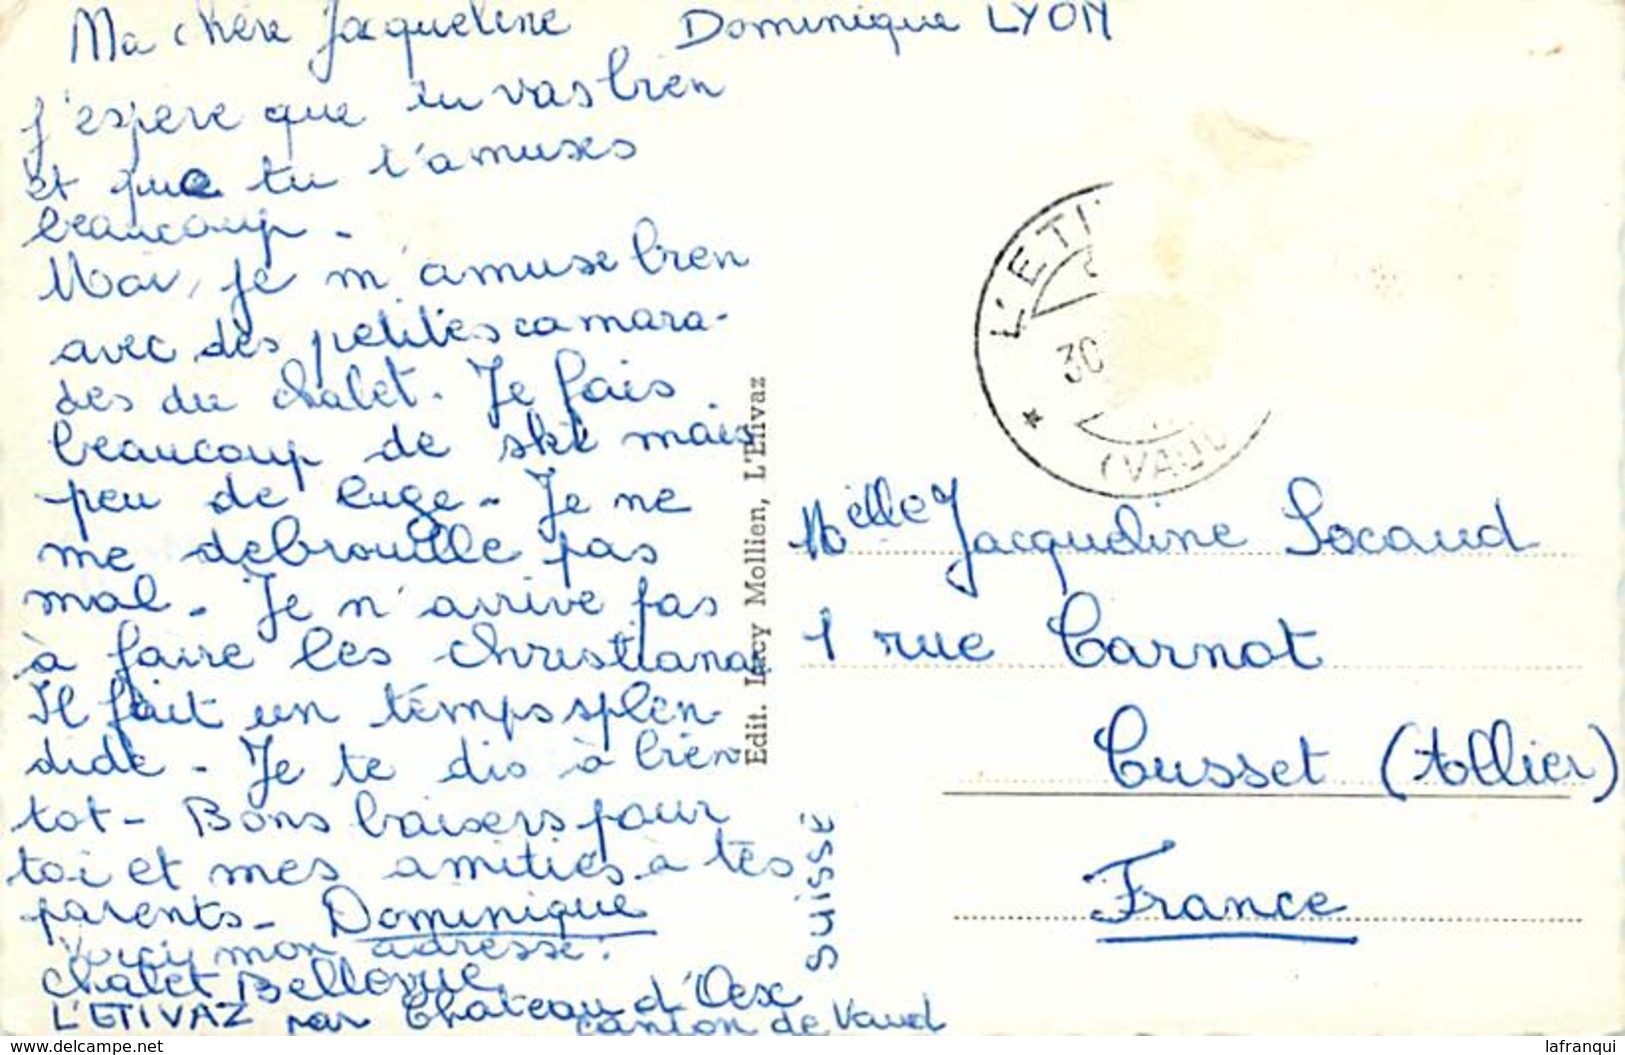 Ma chère Jacqueline Dominique LYON
J'espère que tu vas bien
et que tu t'amuses
beaucoup.
Moi, je m'amuse bien
avec des petites camara-
des du chalet. Je fais
beaucoup de ski mais
peu de luge. Je ne
me debrouille pas
mal. Je n'arrive pas
à faire les christiana
Il fait un temps splen-
dide. Je te dis à bien
tot - Bons baisers pour
toi et mes amitiés à tes
parents - Dominique
Voici mon adresse:
Chalet Bellevue
L'ETIVAZ par Chateau d'Oex
canton de Vaud
Edit. Lucy Mollien, L'Etivaz
SUISSE
L'ETI
30
(VAUD
Melle Jacqueline Socaud
1 rue Carnot
Cusset (Allier)
France
www.delcampe.net
lafranqui